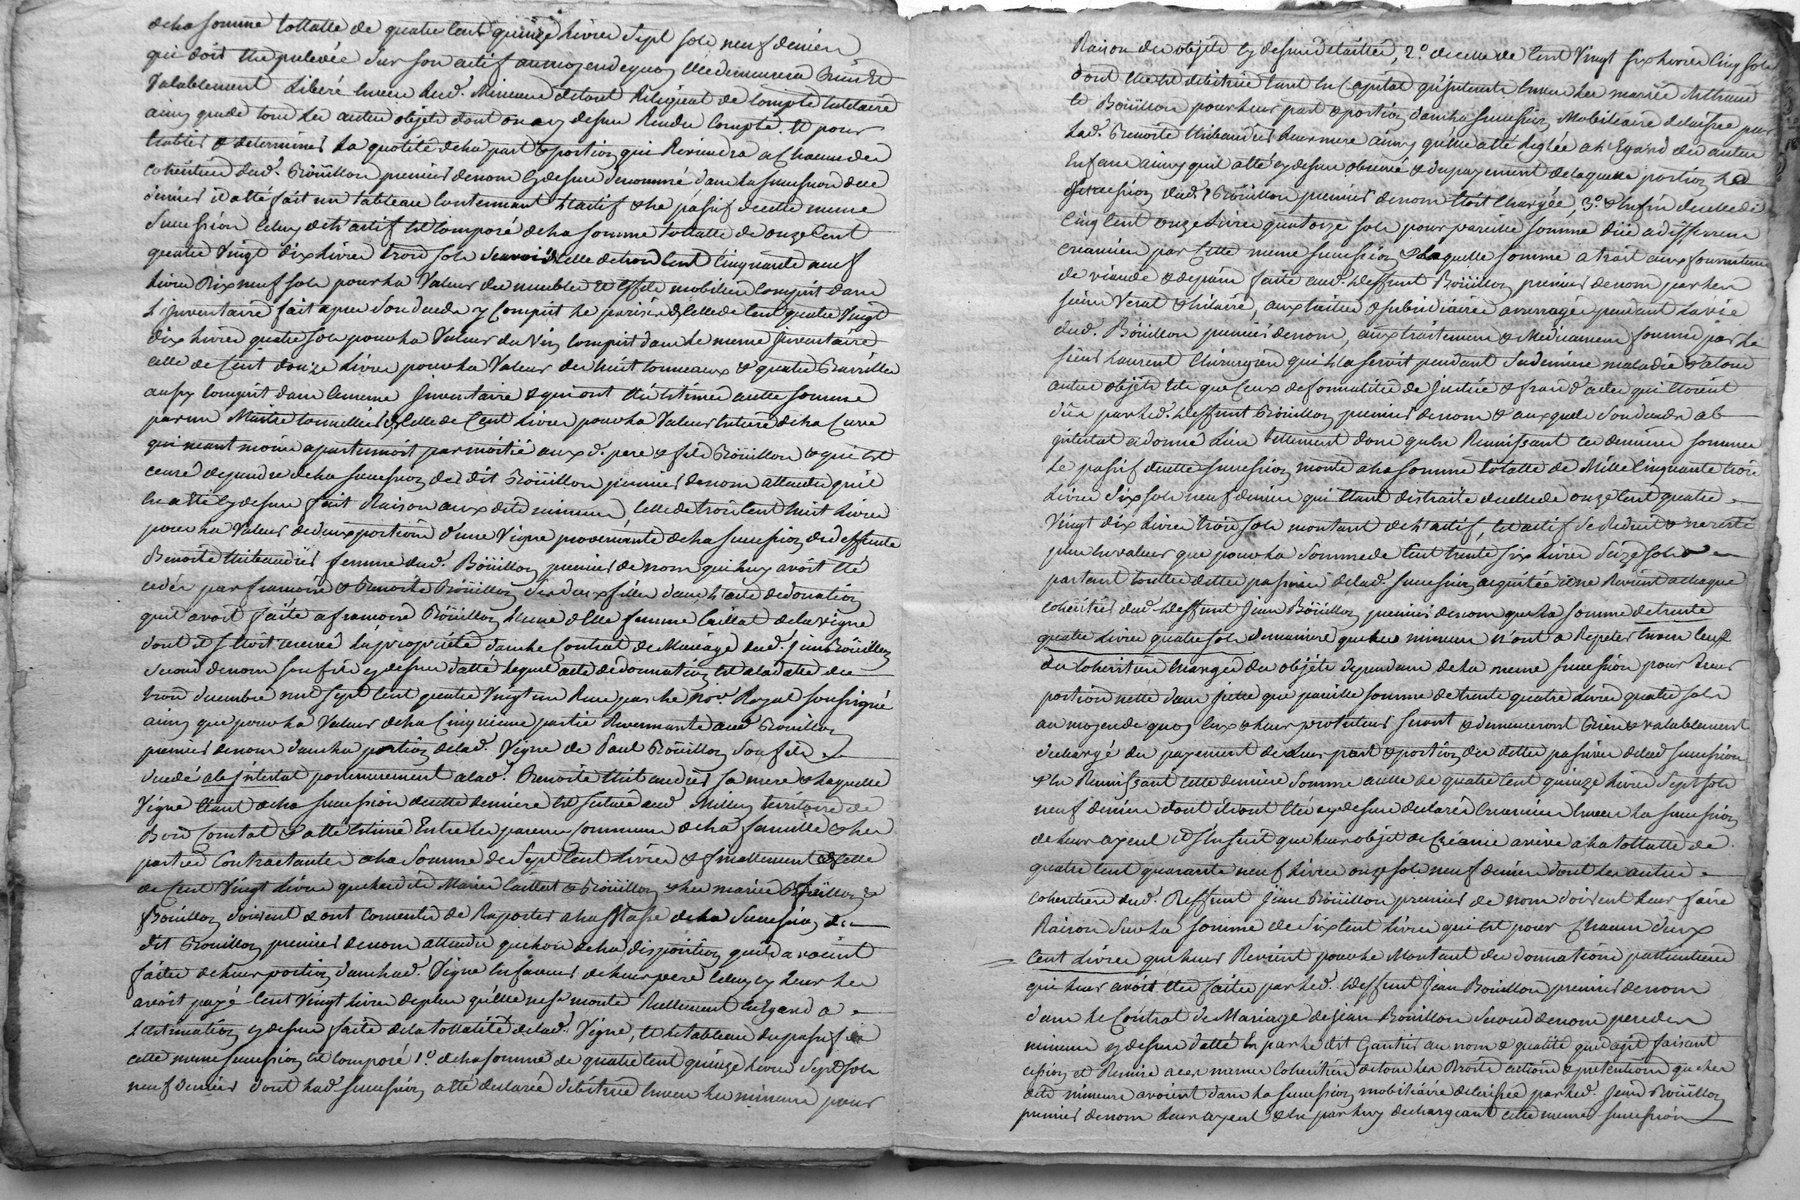 de la somme tottalle de quatre Cent quinze Livres Sept sols neuf deniers
qui doit etre prelevée sur son actif aumoyen dequoy elle demeurera
Valablement Libéré envers lesd. Mineurs detout Reliquat de Compte tutelaire
ainsy que de tous les autres objets dont on a cy dessus Rendu Compte. Et pour
etablir & determiner La quotité dela part & portion qui Reviendra a Chacun des
Cohéritiers dud. Boüillon premier denom cy dessus denommé dans la succession de ce
dernier il a été fait un tableau Contennant L'actif & le passif decette meme
Succession Celuy del'actif est Composé dela somme tottalle de onze Cent
quatre Vingt dix Livres trois sols Scavoir Celle de trois Cent Cinquante neuf
Livres Dix neuf sols pour la Valeur des meubles et effets mobiliers Compris dans
L'Inventaire fait apres son deces y Compris Celle de Cent quatre Vingt
dix Livres quatre sols pour la Valeur du Vin Compris dans le meme Inventaire
celle de Cent douze Livres pour la Valeur des huit tonneaux & quatre
aussy Compris dans le meme Inventaire & qui ont été Estimés a cette somme
par un Maitre tonnellier & Celle de Cent Livres pour la Valeur Entiere dela Cuve
qui neantmoins apartennoit par moitié aux d. pere & fils Boüillon & qui est
censé dependre dela succession du dit Boüillon premier denom attendu qu'il
en a été cy dessus fait Raison aux dits mineurs, Celle de trois Cent huit Livres
pour la Valeur de deux portions d'une Vigne provenante dela succession de deffunte
Benoite femme dud. Boüillon premier de nom qui luy avoit été
cedée par francoise & Benoite Boüillon ses deux filles dans l'acte dedonation
qu'il avoit faite a francoise Boüillon L'une d'elle femme Caillat de la vigne
dont il s'etoit reservé la proprieté dans le Contrat de Mariage dud. Jean Boüillon
second denom son fils cy dessus datté lequel acte dedonnation est aladatte du
trois decembre mil sept Cent quatre Vingt un Recu par le No.re Royal soussigné
ainsy que pour la Valeur dela Cinquieme partie Revennante aud. Boüillon
premier denom dans la portion delad. Vigne de Paul Boüillon son fils
decedé ab intestat posterieurement a lad. Benoite sa mere & laquelle
Vigne Etant dela succession decette derniere est située aud. Millery territoire de
Bois Comtal & a été Estimée Entre les parens Communs dela famille & les
parties Contractantes ala Somme de Sept Cent Livres & finallement Celle
de Cent Vingt Livres que lesdits Mariés Caillat & Boüillon & les mariés
Boüillon doivent & ont Consenti de Raporter ala Masse dela Succession du
dit Boüillon premier denom attendu que lors dela disposition quils avoient
faite deleur portion dans lad. Vigne En faveur deleur pere Celuy cy leur
avoit payé Cent Vingt Livres deplus qu'elle ne se monte Reellement Eu Egard a
L'Estimation cy dessus faite dela tottalité delad. Vigne, Et le tableau du passif de
cette meme succession est Composé 1.o dela somme de quatre Cent quinze Livres Sept sols
neuf deniers dont lad. succession a été declarée debitrice envers les mineurs pour
Raison des objets cy dessus detaillés, 2.o de celle de Cent Vingt six Livres Cinq sols
dont elle est debitrice tant en Capital qu'Interets Envers les mariés
& Boüillon pour leur part & portion dans la succession Mobiliaire delaissée par
lad. Benoite leur mere ainsy qu'elle a été Réglée a l'Egard des autres
Enfans ainsy quil a été cy dessus observé & du payement de laquelle portion la
succession dud. Boüillon premier denom Etoit Chargée, 3.o & Enfin de celle de
Cinq Cent onze Livres quatorze sols pour pareille somme düe a differens
creanciers par Cette meme succession & laquelle somme a trait aux fournitures
de viande & depain faite aud. deffunt Boüillon premier denom par les
sieurs Verat & hilaire, aux tailles & subsidiaires arrerages pendant la vie
dud. Boüillon premier denom, aux traitemens & Médicamens fournis par le
sieur Laurent Chirurgien qui l'a servit pendant sa derniere maladie & a tous
autres objets tels que Ceux de formalités de Justice & frais d'actes qui Etoient
düs par led. deffunt Boüillon premier denom & auxquels son deces ab
intestat a donné Lieu tellement donc qu'En Reunissant ces dernieres sommes
Le passif decette succession monte ala somme tottalle de Mille Cinquante trois
Livres Six sols neuf deniers qui Etant distraite de celle de onze Cent quatre
Vingt dix Livres trois sols montant del'actif, cet actif se Reduit & ne reste
plus en valeur que pour la Somme de Cent trente six Livres Seize sols
partant touttes dettes passives delad. succession acquitée il ne Revient achaque
Cohéritier dud. deffunt Jean Boüillon premier denom que la somme de trente
quatre Livres quatre sols demaniere que les mineurs n'ont a Repeter Envers Ceux
des Cohéritiers Chargés des objets dependans dela meme succession pour leur
portion nette dans icelle que pareille somme de trente quatre Livres quatre sols
au moyen de quoy Eux & leurs protecteurs seront & demeureront bien & valablement
dechargé du payement de leur part & portion des dettes passives delad. succession
& En Reunissant cette derniere Somme a celle de quatre Cent quinze Livres Sept sols
neuf deniers dont ils ont été cy dessus declarés Creanciers Envers la succession
de leur ayeul il s'Ensuit que leur objet de Créance arrive a la tottalité de
quatre Cent quarante neuf Livres onze sols neuf deniers dont les autres
Cohéritiers dud. Deffunt Jean Boüillon premier de nom doivent leur faire
Raison Sur la somme de Six Cent Livres qui est pour Chacun d'eux
Cent Livres qui leur Revient pour le Montant des donnations particulieres
qui leur avoit été faites par led. deffunt Jean Boüillon premier denom
dans le Contrat de Mariage de Jean Boüillon second denom pere des
mineurs cy dessus datté En par le dit Gantier au nom & qualité qu'il agit faisant
cession et Remise a ces memes Cohéritiers detous les Droits actions & pretentions que les
dits mineurs avoient dans la succession mobiliaire delaissée par led. Jean Boüillon
premier denom leur ayeul & En par luy dechargeant cette meme succession